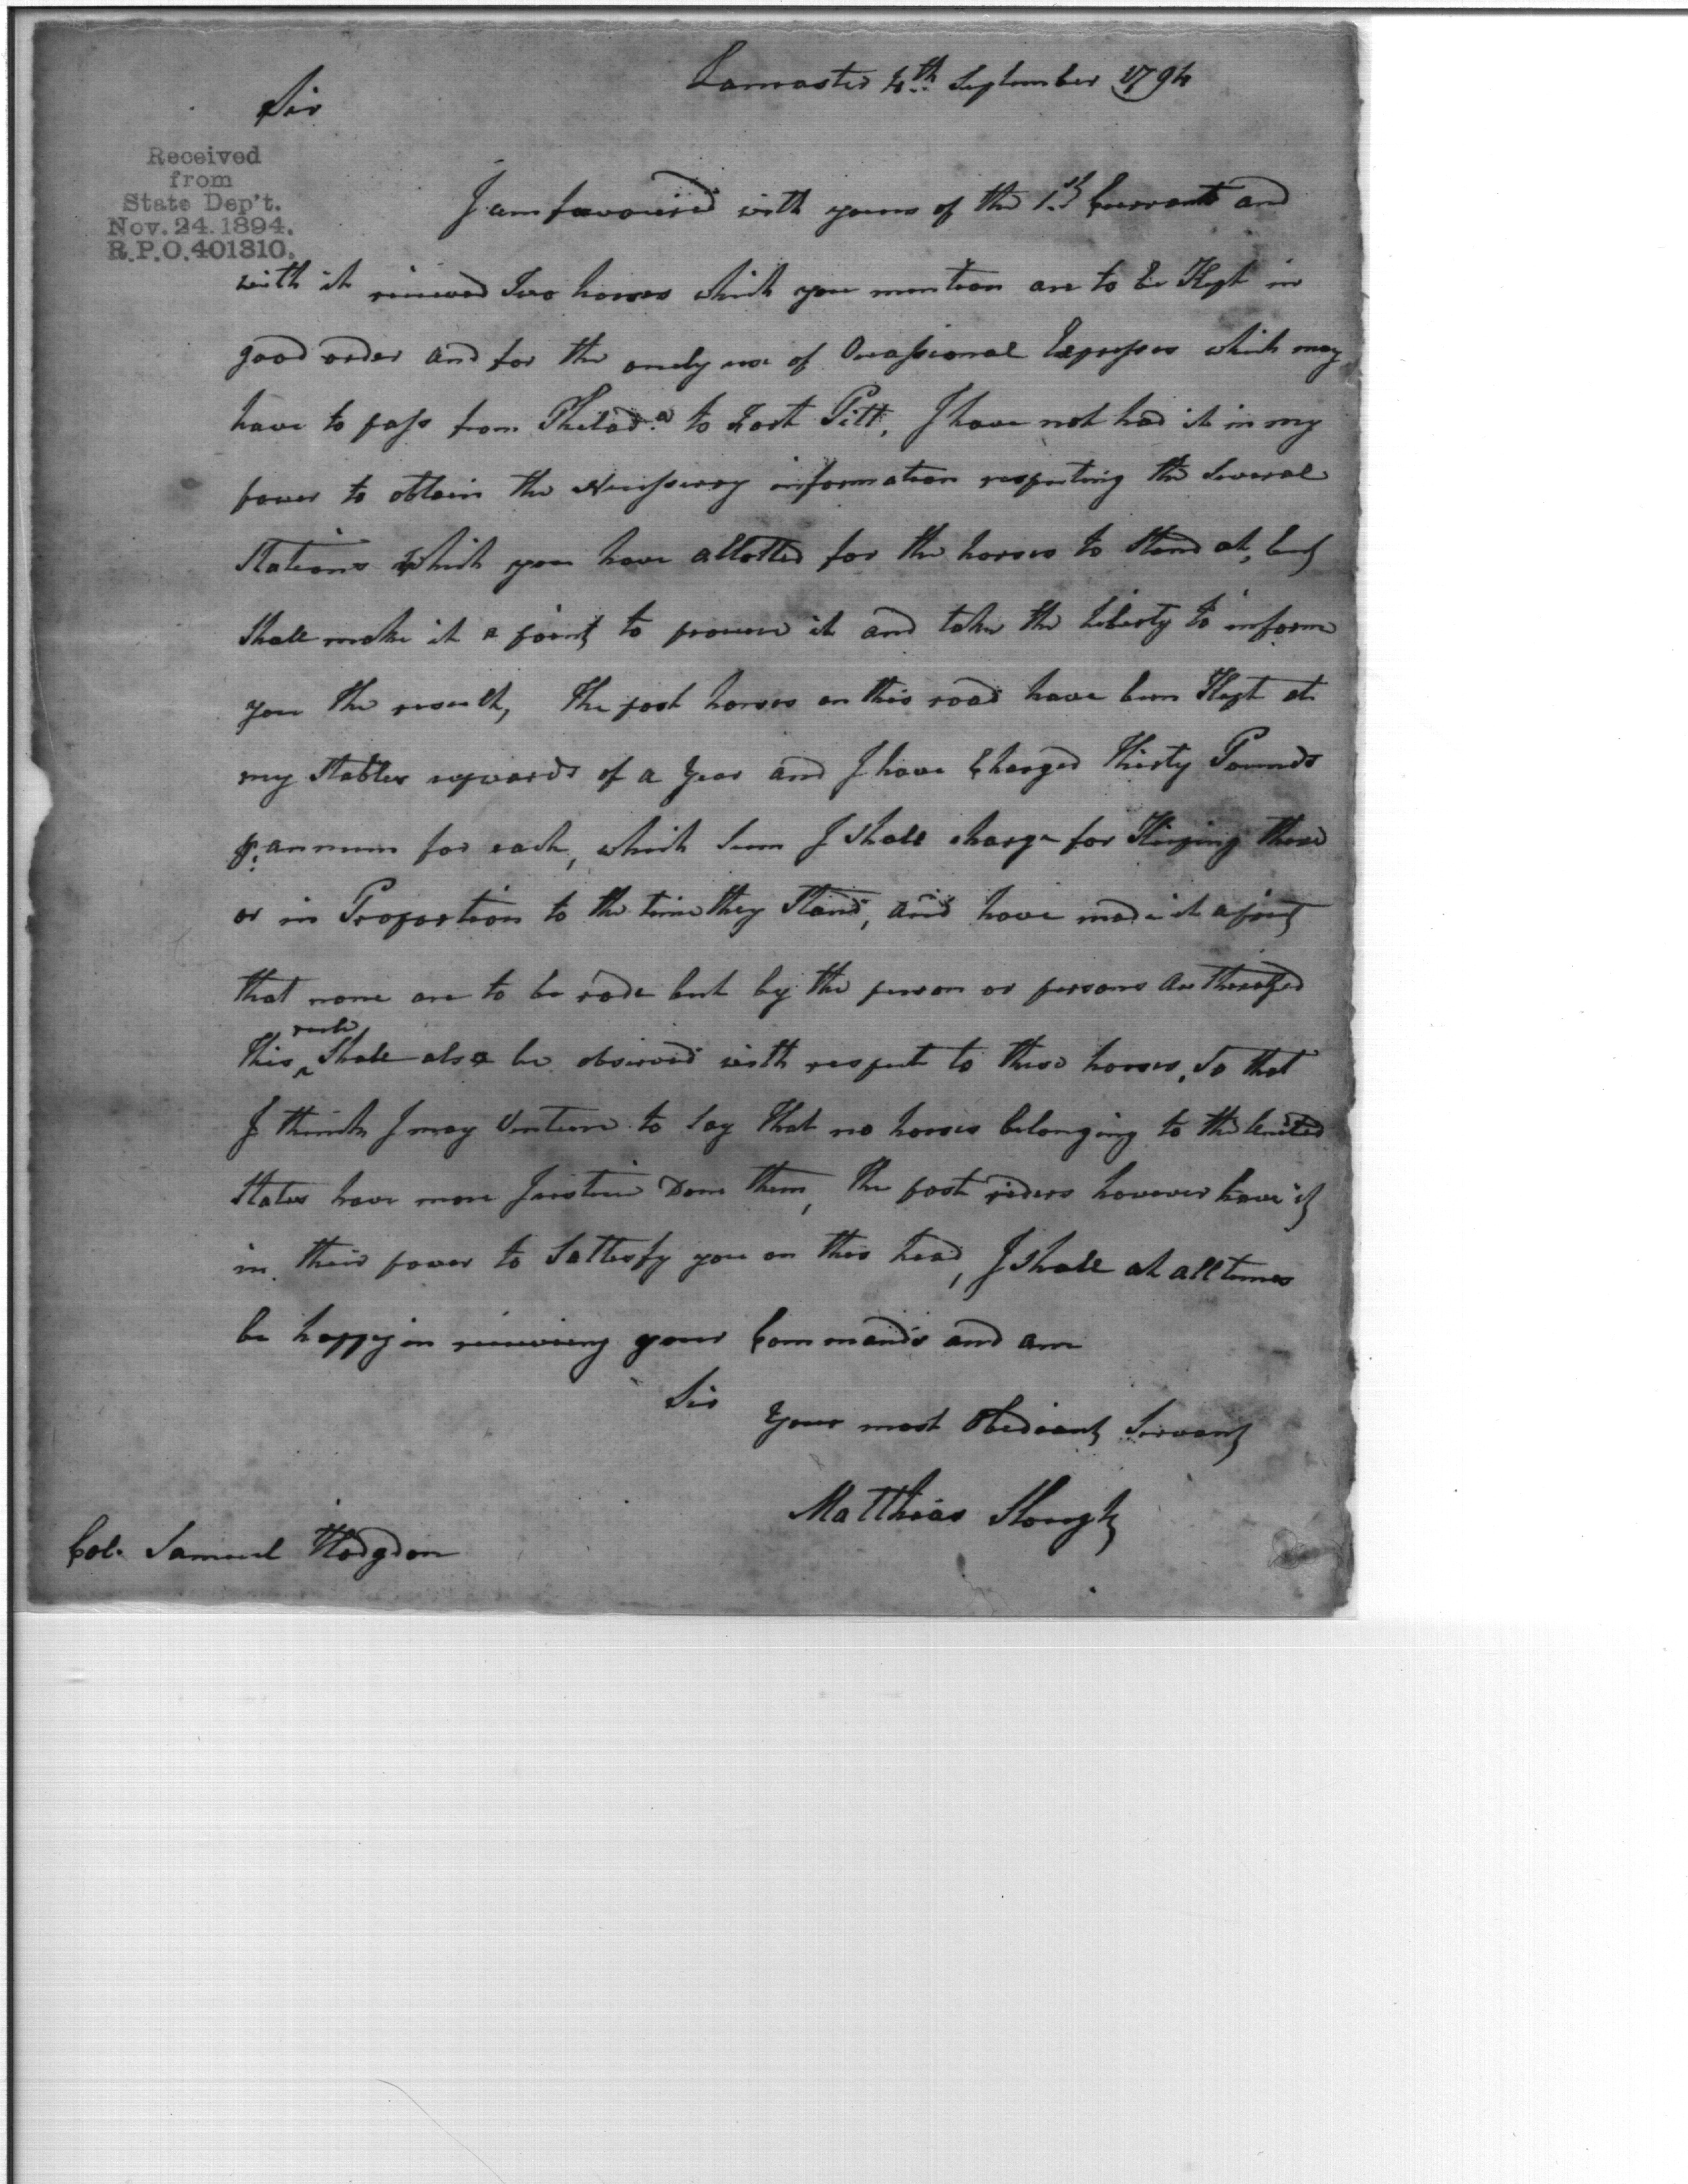 Lancaster 4th September 1794
Sir
Received
from
State Dep't.
Nov. 24. 1894.
R.P.O. 401310.
I am favoured with yours of the 1st Currant and
with it received Two horses which you mention are to be Kept in
good order and for the onely use of Ocassional Expresses which may
have to pass from Philada to Fort Pitt, I have not had it in my
power to obtain the Necessary information respecting the Several
Stations which you have allotted for the horses to Stand at, but
Shall make it a point to procure it and take the Liberty to inform
you the result, The post horses on this road have been Kept at
my Stables upwards of a Year and I have Charged Thirty Pounds
p. annum for each, which Sum I Shall charge for Keeping these
or in Proportion to the time they Stand, and have made it a point
that none are to be rode but by the person or persons Authorized
rule
This ^ Shall also be observed with respect to these horses, So that
I think I may Venture to Say that no horses belonging to the United
States have more Justice Done them, The post riders however have it
in their power to Sattesfy you on this head, I Shall at all times
be happy in receiving your Commands and am
Sir
Your most Obedient Servant
Matthias Slough
Col. Samuel Hodgdon